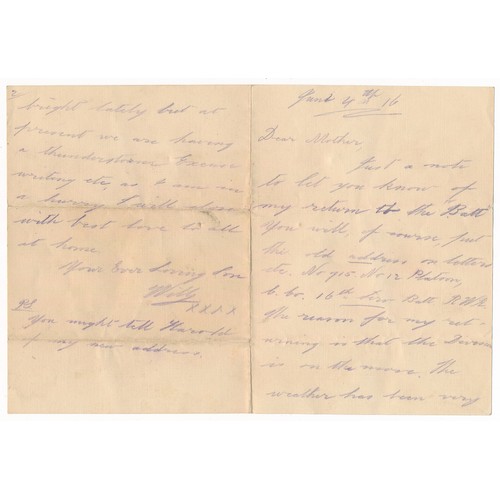 June 4th 16
Dear Mother,
Just a note
to let you know of
my return to the Batt
You will, of course, put
the old address on letters
etc. No 715. No 12 Platoon,
C. Co. 16th Ser. Batt R.W.R.
The reason for my ret-
urning is that the
is on the move. The
weather has been very
2
bright lately but at
present we are having
a thunderstorm Excuse
writing etc, as I am in
a hurry. I will close
with best love to all
at home
Your Ever loving Son
XXXX
PS
You might tell Harold
of my new address.